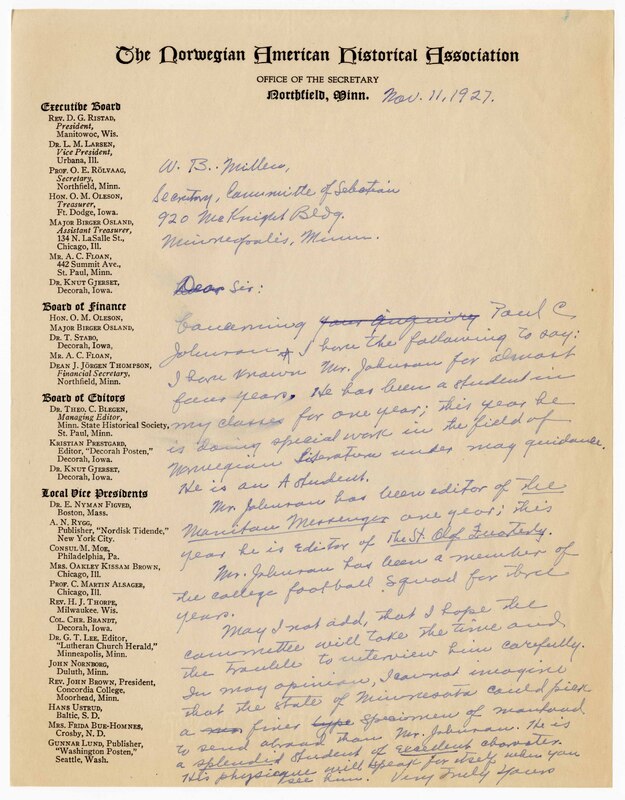 The Norwegian American Historical Association
OFFICE OF THE SECRETARY
Northfield, Minn. Nov. 11, 1927.
Executive Board
REV. D. G. RISTAD,
President,
Manitowoc, Wis.
DR. L. M. LARSEN,
Vice President,
Urbana, Ill.
PROF. O. E. RÖLVAAG,
Secretary,
Northfield, Minn.
HON. O. M. OLESON,
Treasurer,
Ft. Dodge, Iowa.
MAJOR BIRGER OSLAND,
Assistant Treasurer,
134 N. LaSalle St.,
Chicago, Ill.
MR. A. C. FLOAN,
442 Summit Ave.,
St. Paul, Minn.
DR. KNUT GJERSET,
Decorah, Iowa.
Board of Finance
HON. O. M. OLESON,
MAJOR BIRGER OSLAND,
DR. T. STABO,
Decorah, Iowa.
MR. A. C. FLOAN,
DEAN J. JÖRGEN THOMPSON,
Financial Secretary,
Northfield, Minn.
Board of Editors
DR. THEO. C. BLEGEN,
Managing Editor,
Minn. State Historical Society,
St. Paul, Minn.
KRISTIAN PRESTGARD,
Editor, "Decorah Posten,"
Decorah, Iowa.
DR. KNUT GJERSET,
Decorah, Iowa.
Local Vice Presidents
DR. E. NYMAN FIGVED,
Boston, Mass.
A. N. RYGG,
Publisher, "Nordisk Tidende,"
New York City.
CONSUL M. MOE,
Philadelphia, Pa.
MRS. OAKLEY KISSAM BROWN,
Chicago, Ill.
PROF. C. MARTIN ALSAGER,
Chicago, Ill.
REV. H. J. THORPE,
Milwaukee. Wis.
COL. CHR. BRANDT,
Decorah, Iowa.
DR. G. T. LEE, Editor,
"Lutheran Church Herald,"
Minneapolis, Minn.
JOHN NORNBORG,
Duluth, Minn.
REV. JOHN BROWN, President,
Concordia College,
Moorhead, Minn.
HANS USTRUD,
Baltic, S. D.
MRS. FRIDA BUE-HOMNES,
Crosby, N. D.
GUNNAR LUND, Publisher,
"Washington Posten,"
Seattle, Wash.
W. B. Millen,
Secretary, Committe of Selection
920 McKnight Bldg.
Minneapolis, Minn.
Dear Sir:
Concerning your inquiry Paul C.
Johnson, I have the following to say:
I have known Mr. Johnson for almost
four years. He has been a student in
my classes for one year; this year he
is doing special work in the field of
Norwegian Literature under may guidance.
He is an A student.
Mr. Johnson has been editor of the
Manitou Messenger one year; this
year he is Editor of the St. Olaf Quaterly.
Mr. Johnson has been a member of
the college football squad for three
years.
May I not add, that I hope the
committee will take the time and
the trouble to interview him carefully.
In may opinion, I cannot imagine
that the State of Minnesota could pick
a finer type Specimen of manhood
to send abroad than Mr. Johnson. He is
a splendid student of excellent character.
His physique will speak for itself when you
see him. Very truly yours